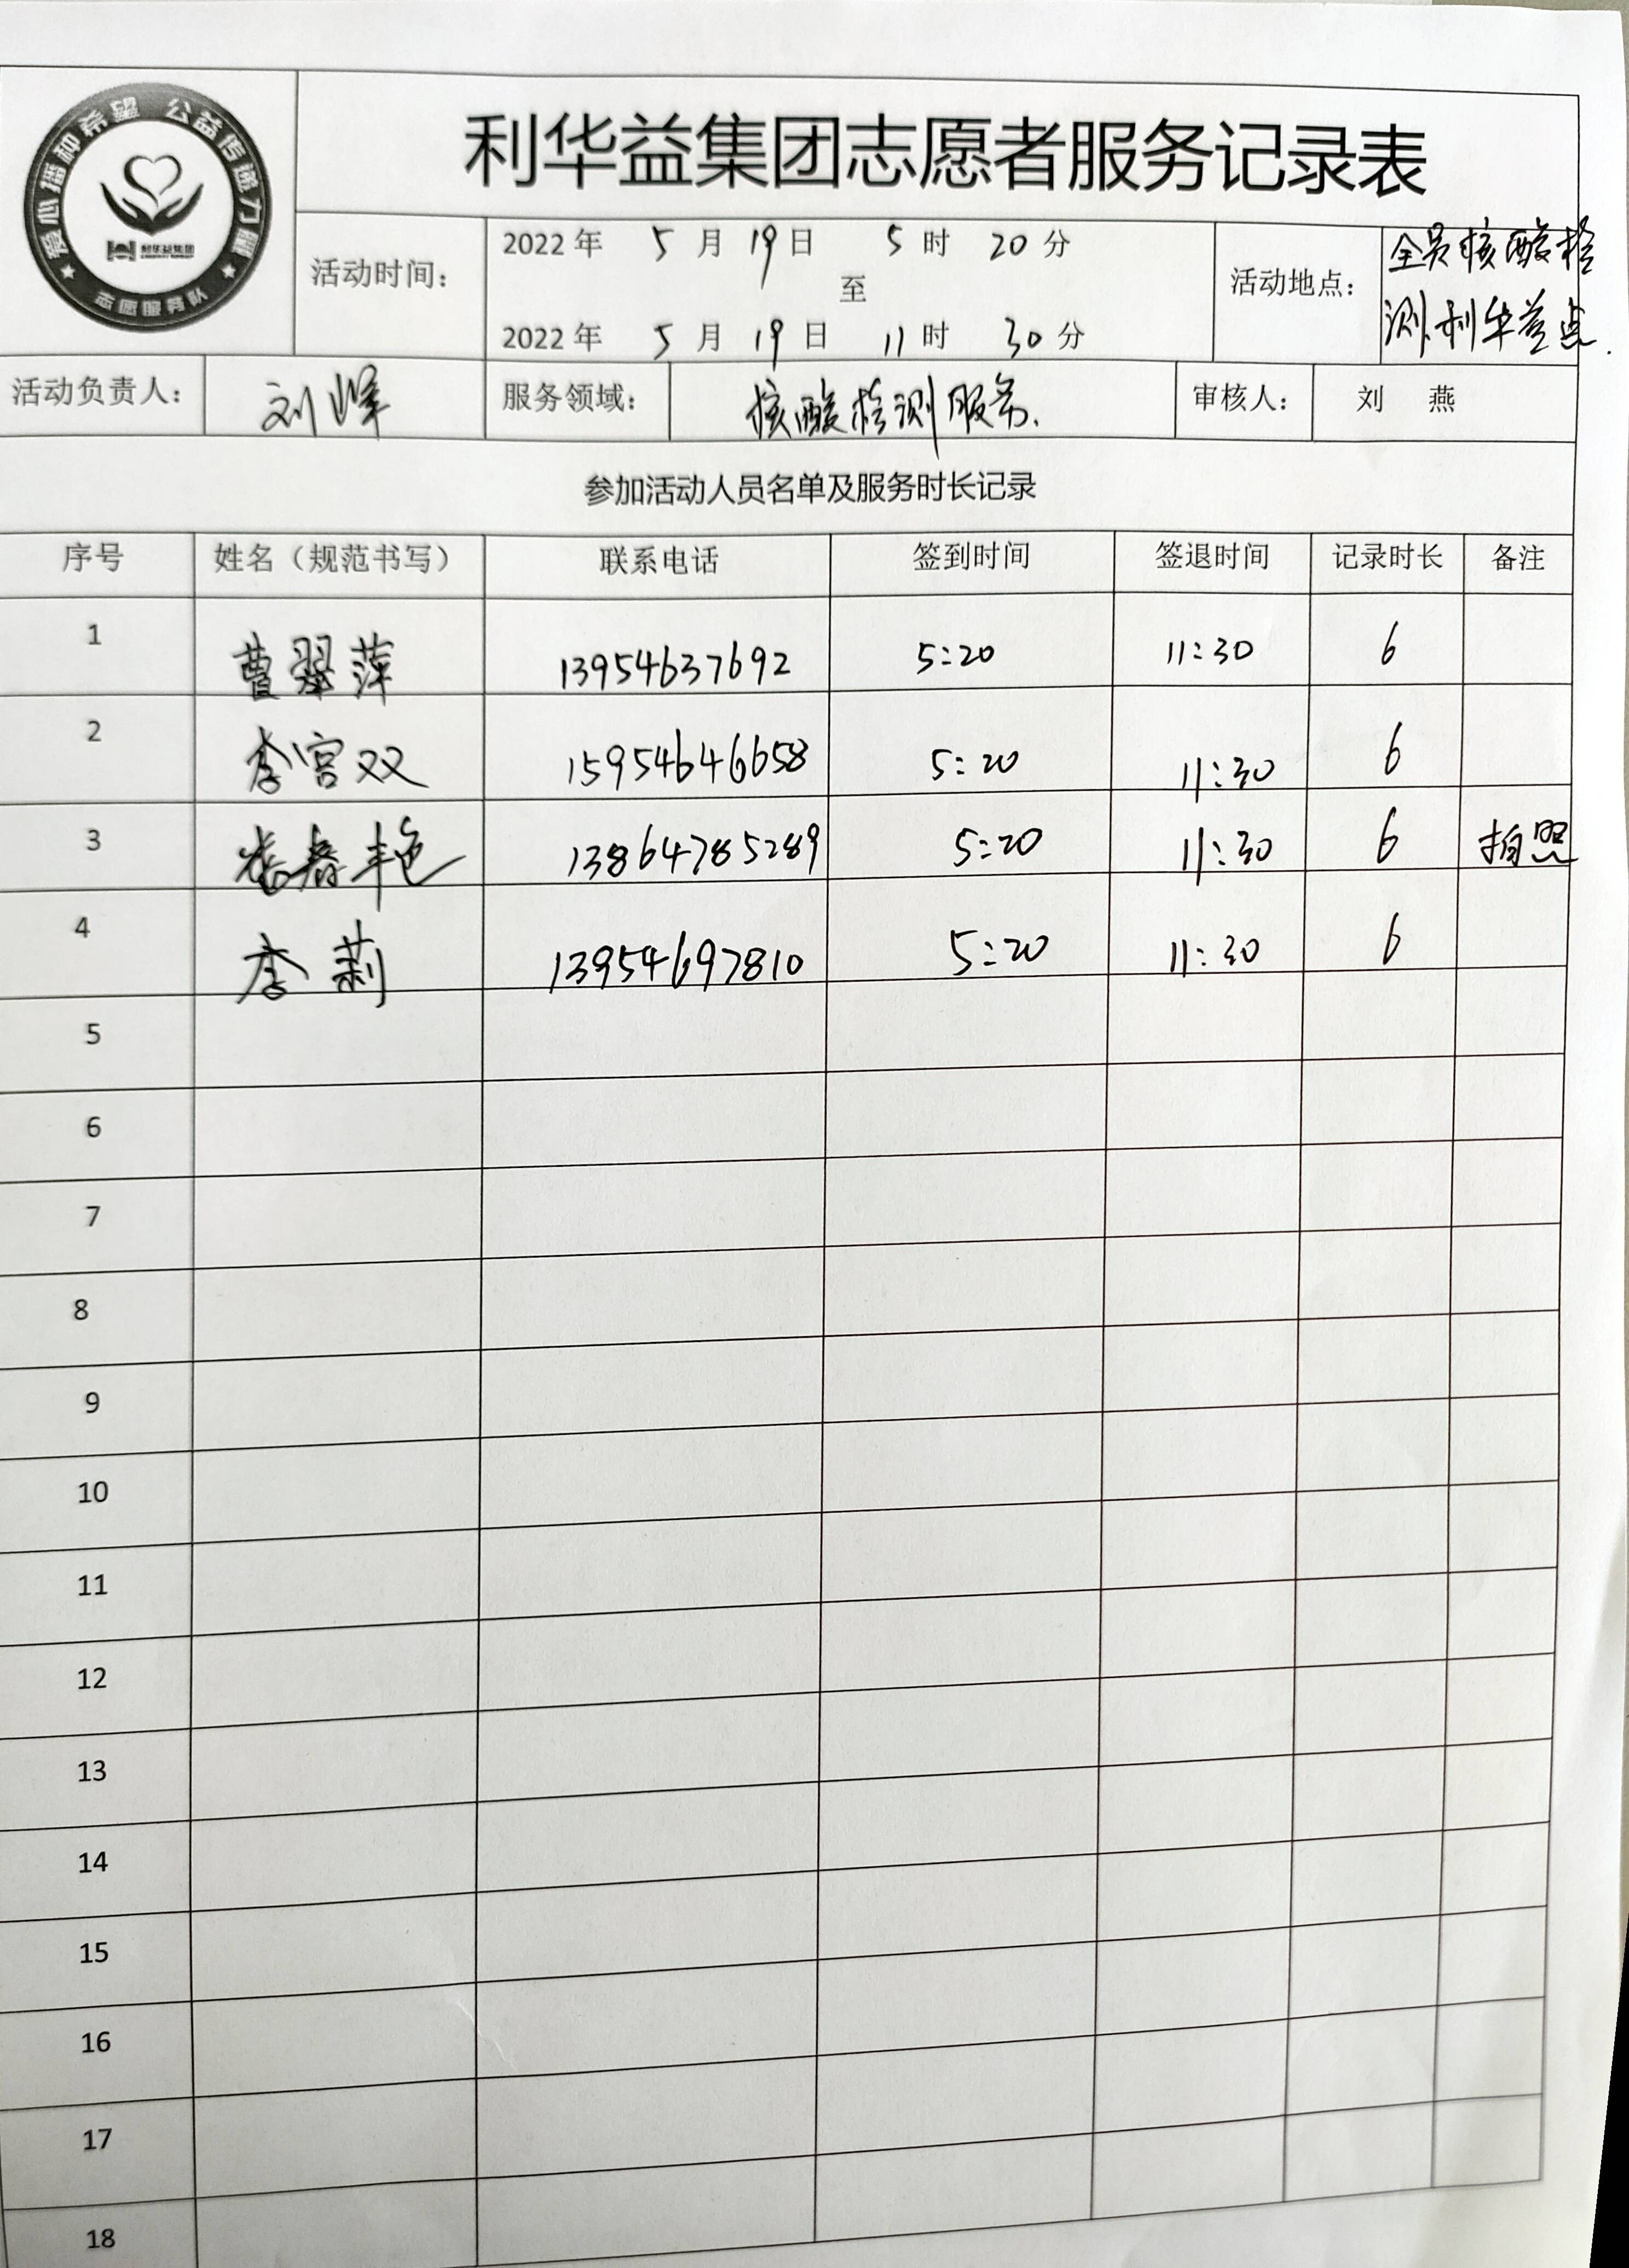 爱心播种希望 公益传递力量
利华益集团
志愿服务队
利华益集团志愿者服务记录表
活动时间：
2022年 5月19日 5时20分
至
2022年 5月19日 11时30分
活动地点：
全员核酸检
测利华益点.
活动负责人： 刘峰 服务领域： 核酸检测服务. 审核人： 刘 燕
参加活动人员名单及服务时长记录
序号 姓名（规范书写） 联系电话 签到时间 签退时间 记录时长 备注
1 曹翠萍 13954637692 5:20 11:30 6
2 李宫双 15954646658 5:20 11:30 6
3 春艳 13864785289 5:20 11:30 6 拍照
4 李莉 13954697810 5:20 11:30 6
5
6
7
8
9
10
11
12
13
14
15
16
17
18